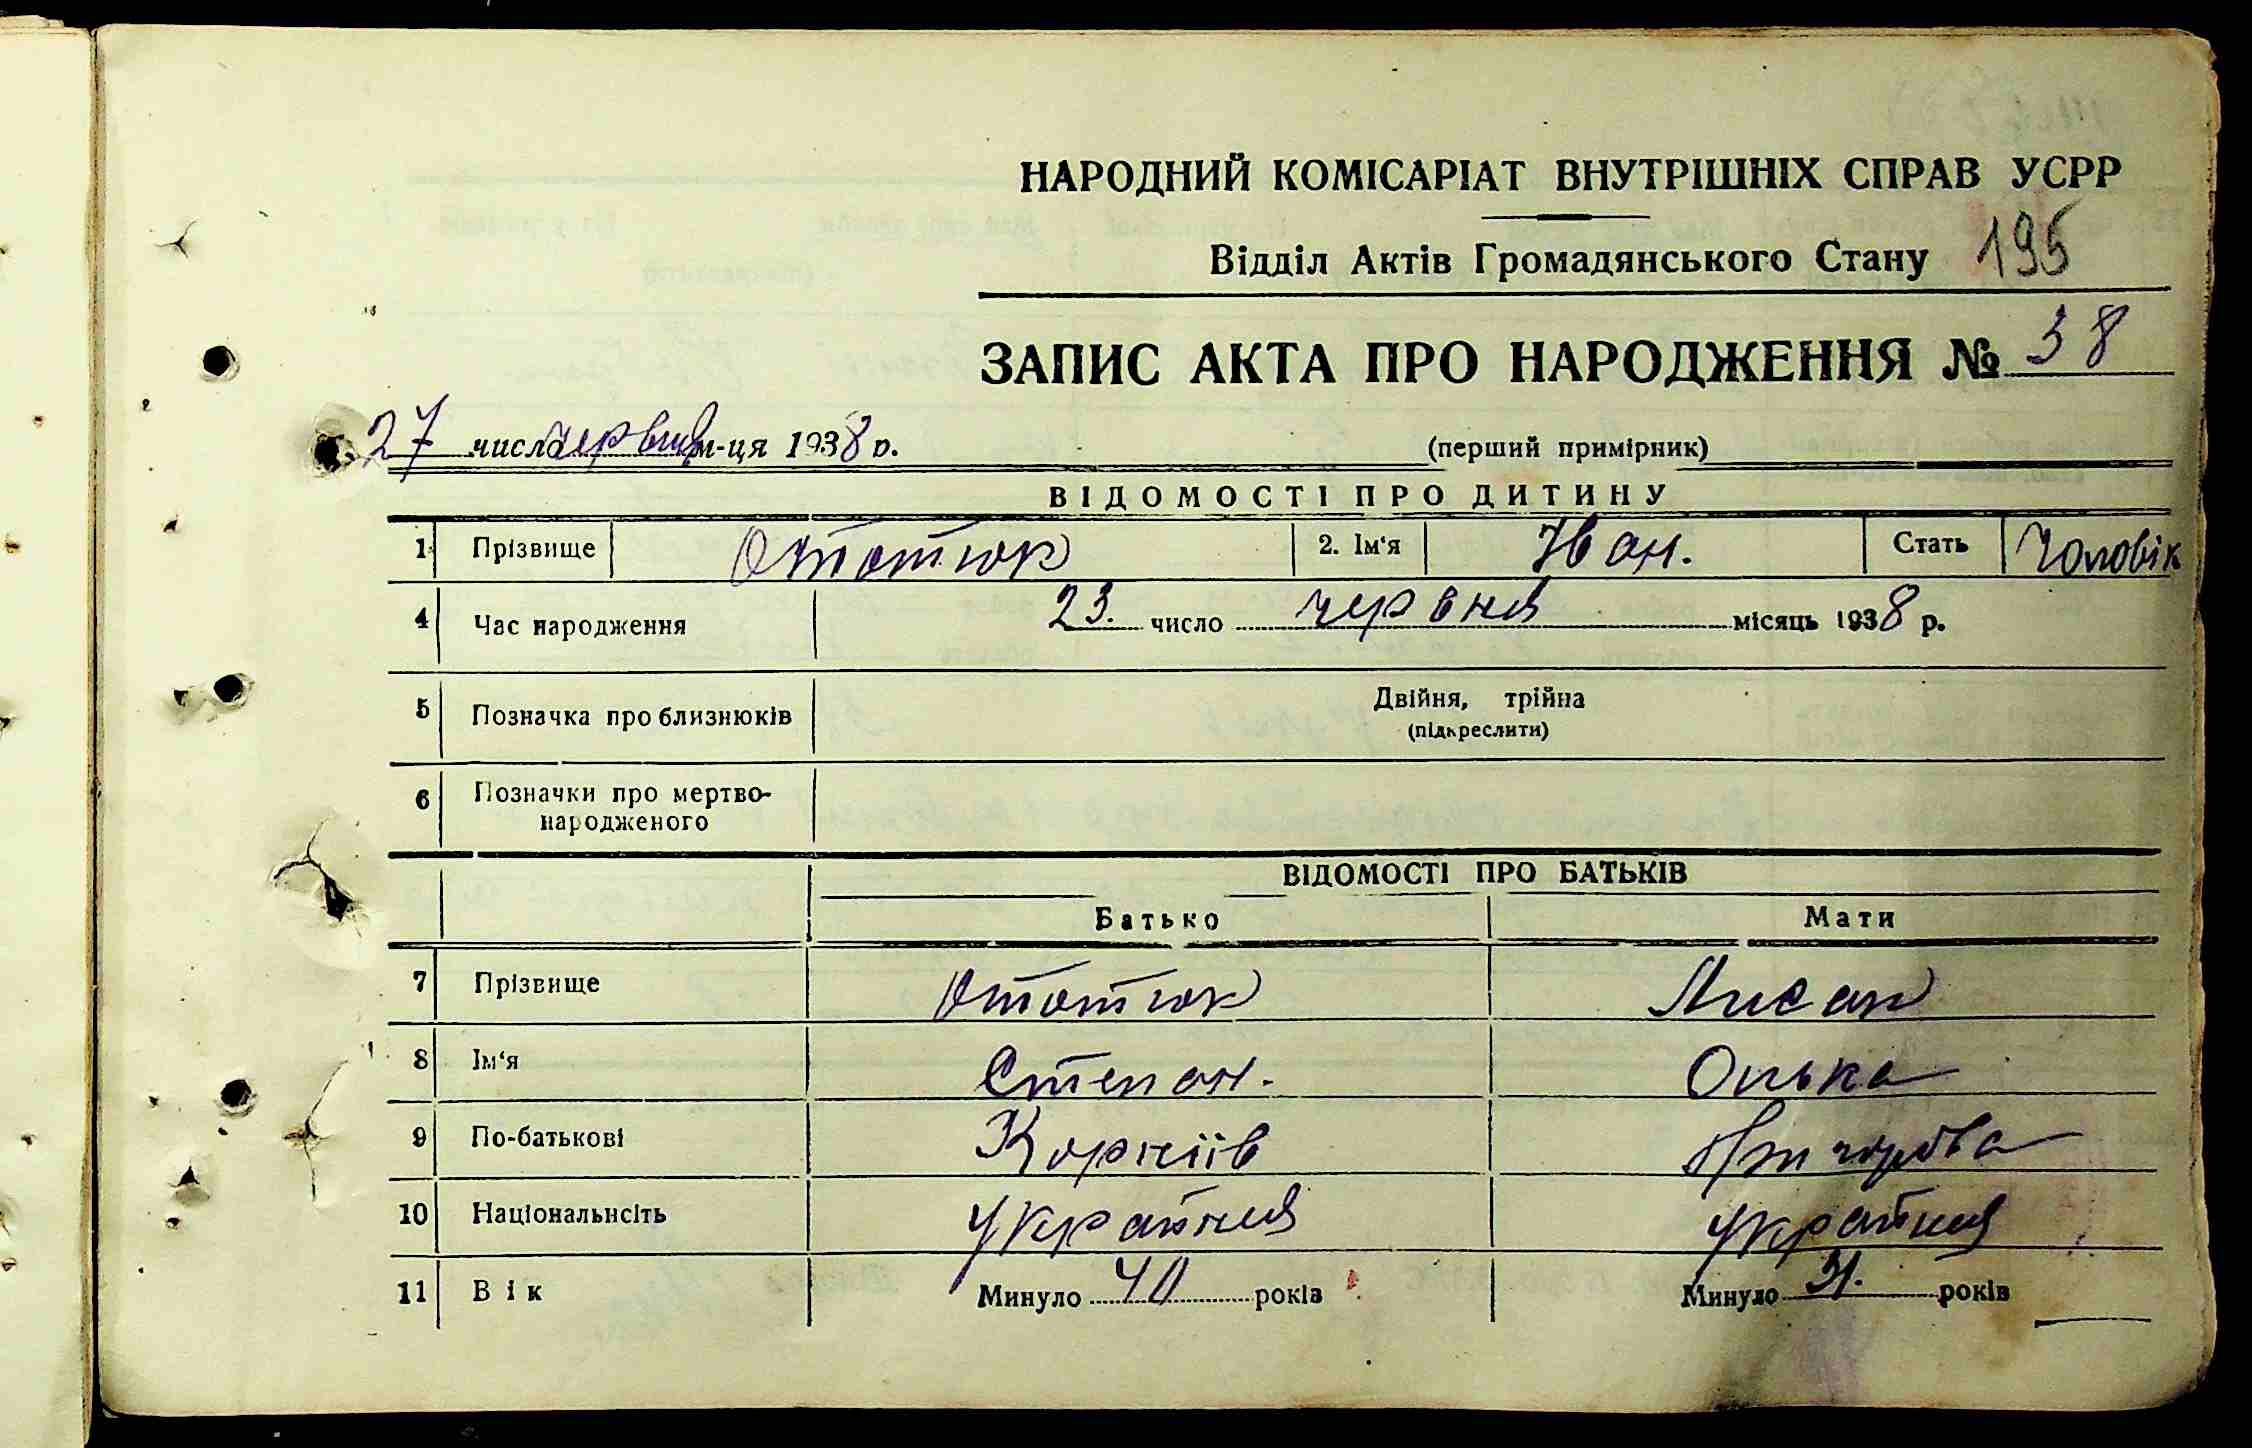 НАРОДНИЙ КОМІСАРІАТ ВНУТРІШНІХ СПРАВ УСРР
Відділ Актів Громадянського Стану 195
ЗАПИС АКТА ПРО НАРОДЖЕННЯ № 38
27 числа червня м-ця 1938 р.
(перший примірник)
ВІДОМОСТІ ПРО ДИТИНУ
1 Прізвище Ототюк 2. Ім'я Іван. Стать Чоловік
4 Час народження 23. число червня місяць 1938 р.
5 Позначка про близнюків Двійня, трійна
(підкреслити)
6 Позначки про мертво-
народженого
ВІДОМОСТІ ПРО БАТЬКІВ
Батько Мати
7 Прізвище Ототюк Лисак
8 Ім'я Степан. Олька
9 По-батькові Корніїв
10 Національнсіть Україння Україння
11 Вік Минуло 40 років Минуло 31. років